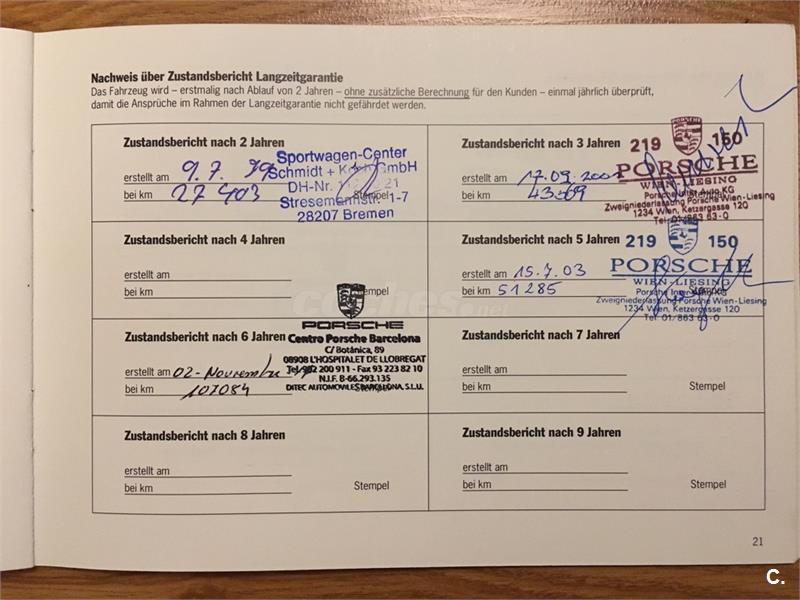 Nachweis über Zustandsbericht Langzeitgarantie
Das Fahrzeug wird – erstmalig nach Ablauf von 2 Jahren – ohne zusätzliche Berechnung für den Kunden – einmal jährlich überprüft,
damit die Ansprüche im Rahmen der Langzeitgarantie nicht gefährdet werden.
Zustandsbericht nach 2 Jahren
erstellt am 9.7.99
bei km 27403
Stempel
Sportwagen-Center
Schmidt + GmbH
DH-Nr. 21
Stresemannstr. 1-7
28207 Bremen
Zustandsbericht nach 3 Jahren
erstellt am 17.09.
bei km
219 150
PORSCHE
WIEN-LIESING
Zweigniederlassung Porsche Wien-Liesing
1234 Wien, Ketzergasse 120
Tel. 01/863 63-0
Zustandsbericht nach 4 Jahren
erstellt am
bei km
Stempel
Zustandsbericht nach 5 Jahren
erstellt am 15.7.03
bei km 51285
219 150
PORSCHE
WIEN-LIESING
Zweigniederlassung Porsche Wien-Liesing
1234 Wien, Ketzergasse 120
Tel. 01/863 63-0
Zustandsbericht nach 6 Jahren
erstellt am 02-Novembre
bei km 107084
PORSCHE
Centro Porsche Barcelona
C/ Botánica, 89
08908 L'HOSPITALET DE LLOBREGAT
Tel. 902 200 911 - Fax 93 223 82 10
N.I.F. B-66.293.135
DITEC AUTOMOVILES BARCELONA, S.L.U.
Zustandsbericht nach 7 Jahren
erstellt am
bei km
Stempel
Zustandsbericht nach 8 Jahren
erstellt am
bei km
Stempel
Zustandsbericht nach 9 Jahren
erstellt am
bei km
Stempel
21
C.